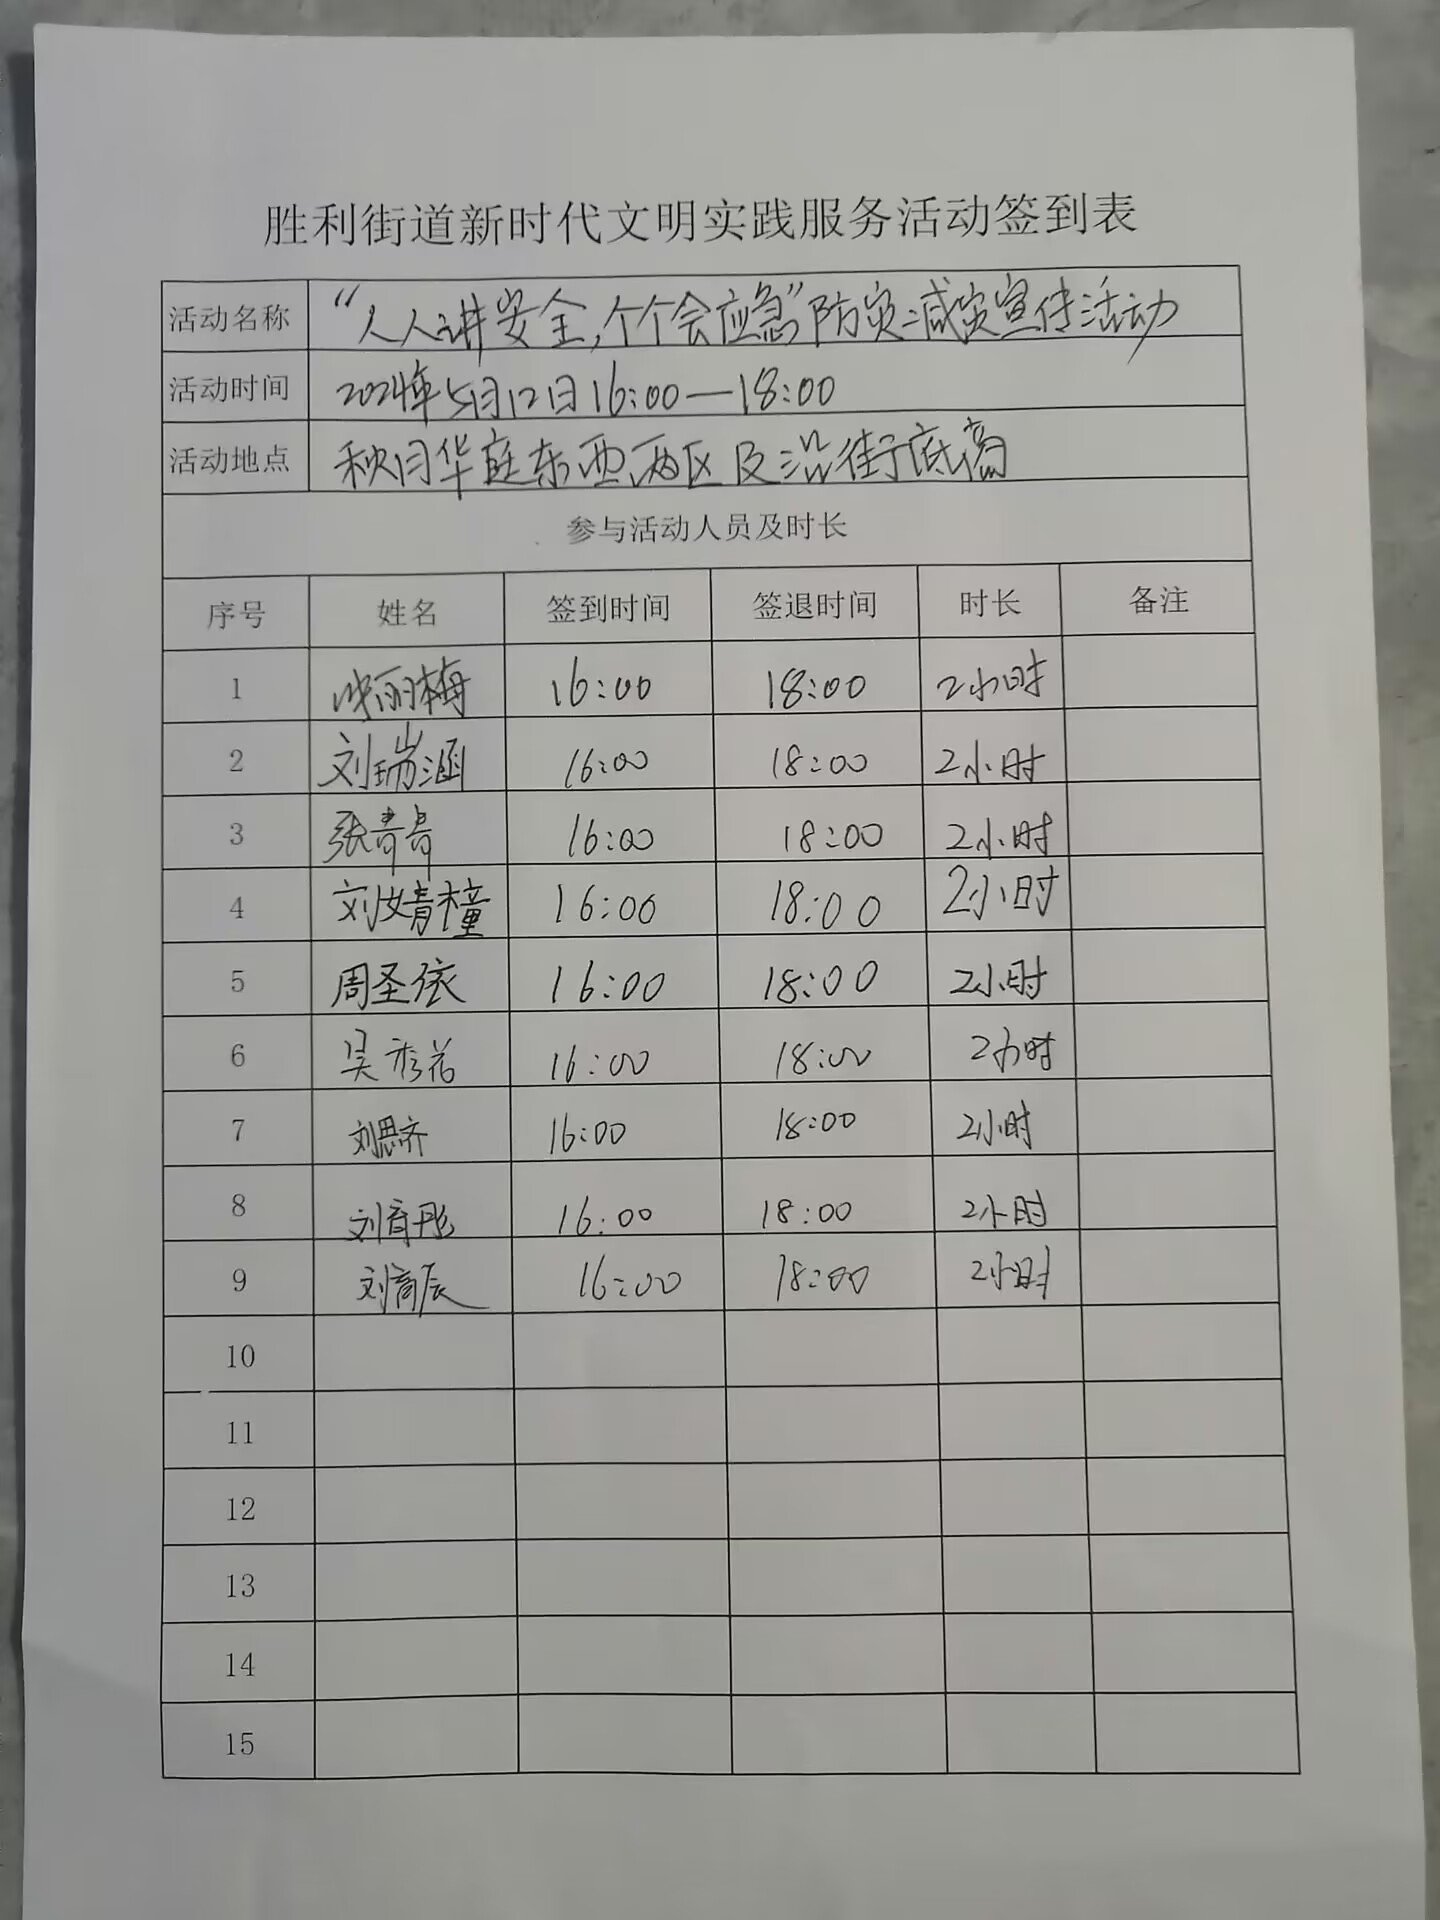 胜利街道新时代文明实践服务活动签到表
活动名称 “人人讲安全,个个会应急”防灾减灾宣传活动
活动时间 2024年5月12日16:00—18:00
活动地点 秋月华庭东西两区及沿街底商
参与活动人员及时长
序号 姓名 签到时间 签退时间 时长 备注
1 丽梅 16:00 18:00 2小时
2 刘瑞涵 16:00 18:00 2小时
3 张青青 16:00 18:00 2小时
4 刘婧橦 16:00 18:00 2小时
5 周圣依 16:00 18:00 2小时
6 吴秀花 16:00 18:00 2小时
7 刘思齐 16:00 18:00 2小时
8 刘育彤 16:00 18:00 2小时
9 刘商辰 16:00 18:00 2小时
10
11
12
13
14
15